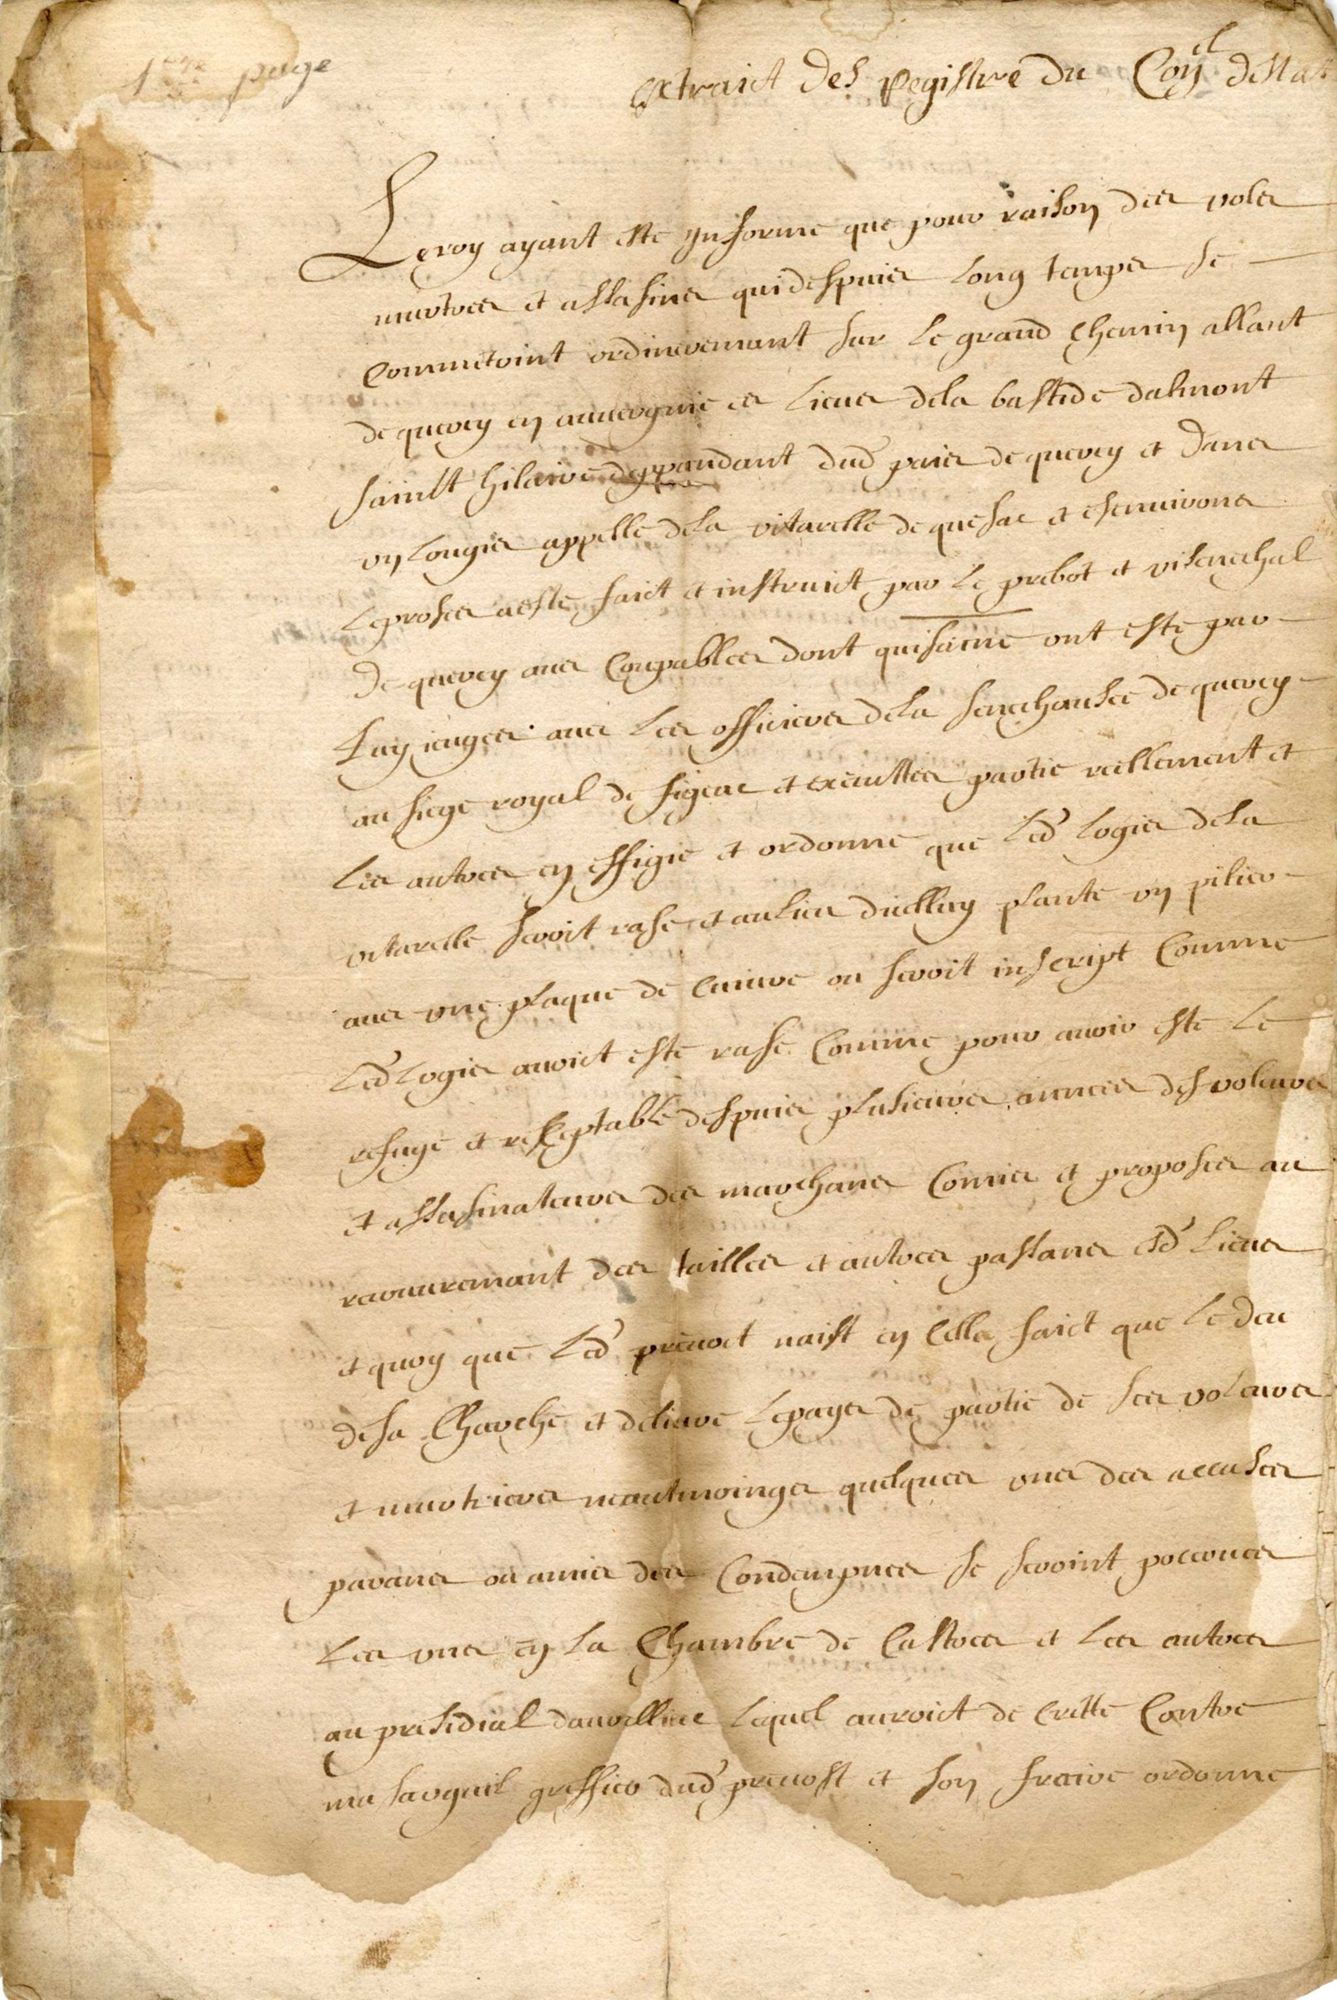 1ere page
extraict des Registre du Con.el destat
Le roy ayant este ynforme que pour raison des voles
murtres et assasines quidespuies long temps se
commetoint ordineremant sur le grand chemin allant
de quercy en auuergnie es lieus dela bastide dalmont
sainlt hilaire deppandant dud pais de quercy et dans
un lougis appelle dela vitarelle de quesac et esenuirons
leproses aeste faict et instruict par le prebot et visenechal
de quercy aus coupables dont quisaine ont este par
luy iuges auec les officiers dela senechausee de quercy
au siege royal de figeac et executtes partie reellement et
les autres en effigie et ordonne que led logis dela
vitarelle seroit rase et aulieu dicelluy plante un pilier
auec une plaque de cuivre ou seroit inscript comme
led logis auoict este rase comme pour auoir este le
refuge et reseptable despuis plusieures annees des voleures
et assasinateures des marchans comis et proposes au
recouuremant des tailles et autres passans esd lieus
et quoy que led preuost naist en cella faict que le deu
de sa charche et deliure lepays de partie de ses voleures
et murtrieres neautmoinges quelques unes des accuses
parans ou amies des condempnes se seroint pourceues
les unes en la chambre de castres et les autres
au presidial daurilliac lequel auroict de crette contre
masargueil greffier dud preuost et son fraire ordonne